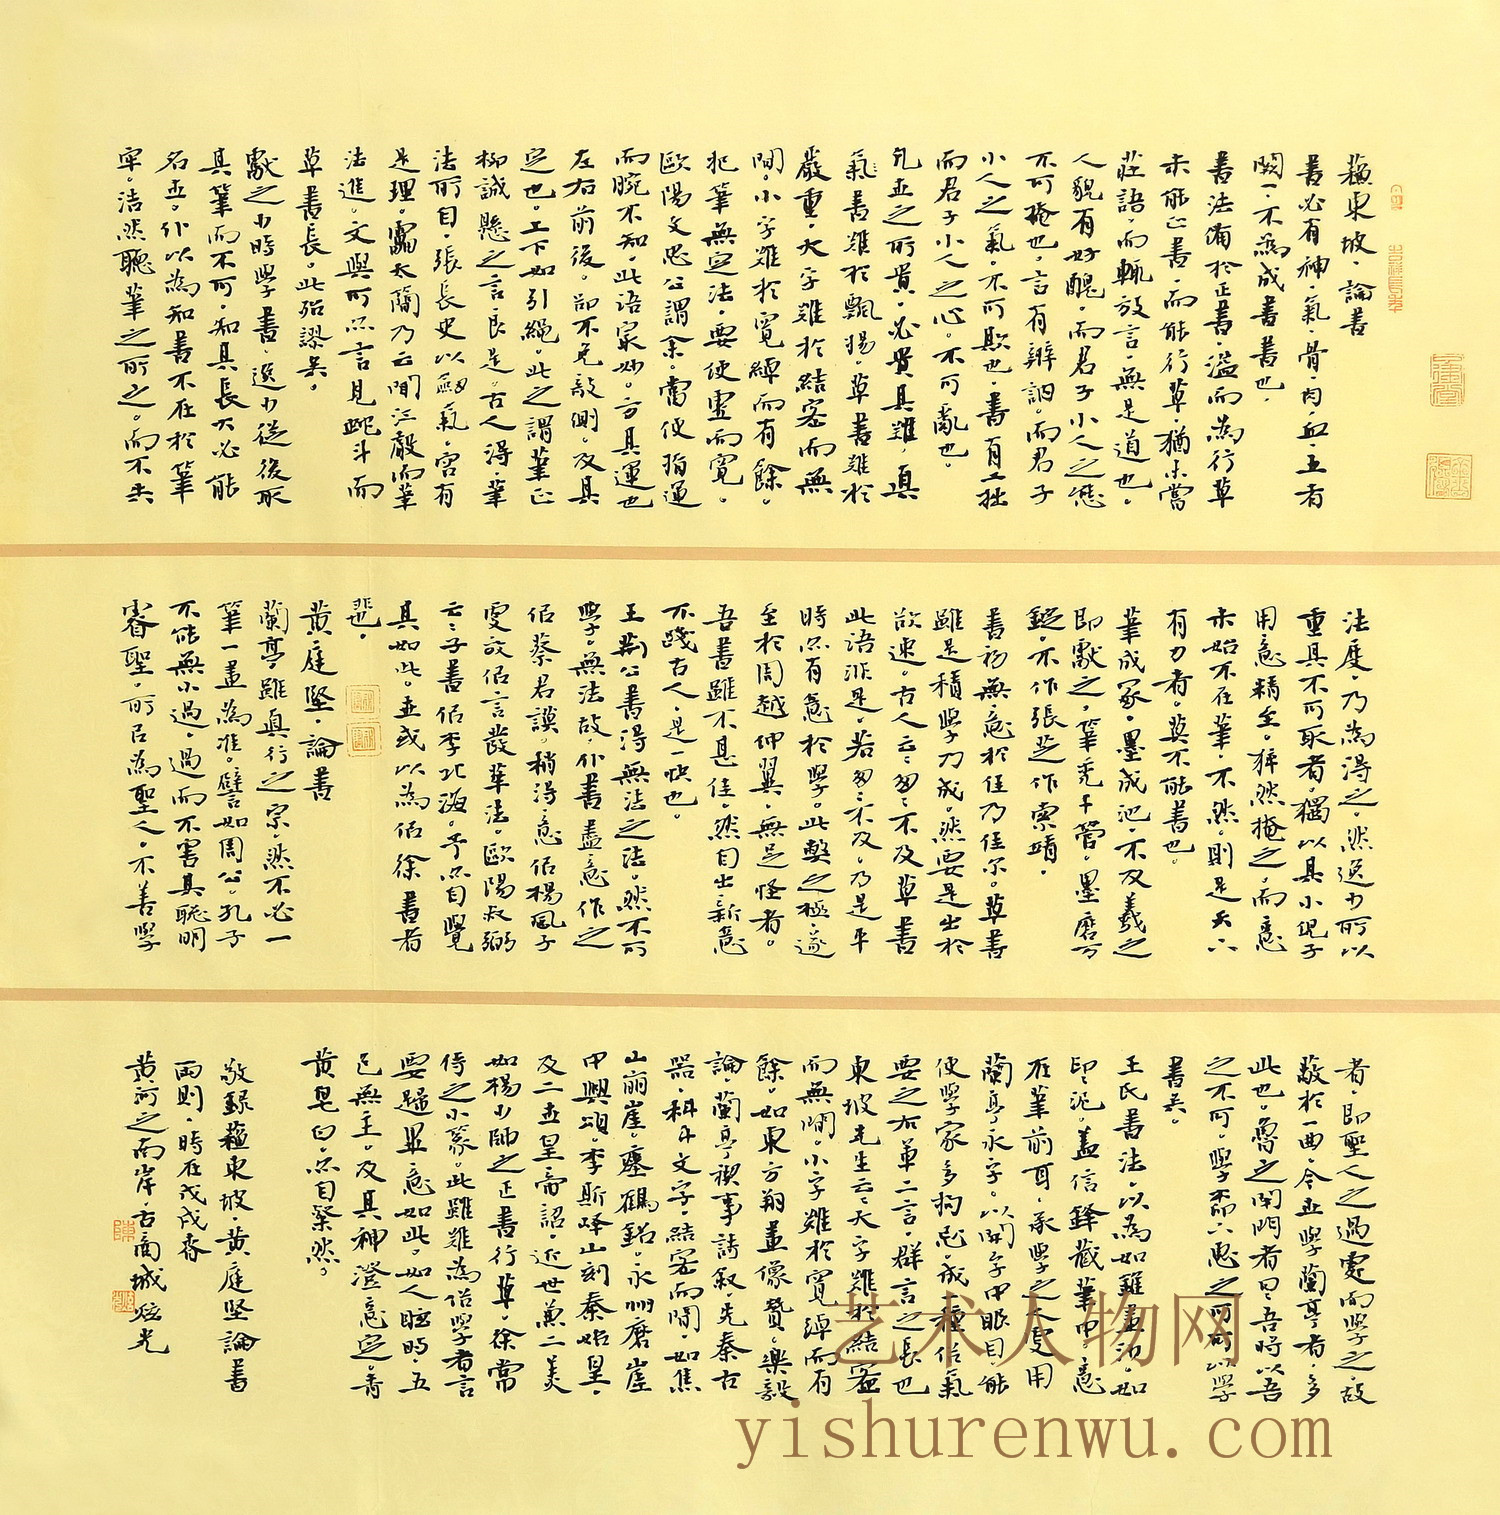 蘇東坡·論書
書必有神·氣·骨·肉·血·五者
闕一·不為成書也·
書法備於正書·溢而為行草
未能正書·而能行草·猶未嘗
莊語·而輒放言·無是道也。
人貌有好醜·而君子小人之態
不可掩也·言有辯訥·而君子
小人之氣·不可欺也·書有工拙
而君子小人之心·不可亂也。
凡世之所貴·必貴其難·真
書難於飄揚·草書難於
嚴重·大字難於結密而無
間·小字難於寬綽而有餘。
把筆無定法·要使虛而寬·
歐陽文忠公謂余·當使指運
而腕不知·此語最妙·方其運也
左右前後·卻不免欹側·及其
定也·上下如引繩·此之謂筆正
柳誠懸之言·良是·古人得筆
法所自·張長史以劍氣·容有
是理·雷太簡乃云聞江聲而筆
法進·文與可亦言見蛇斗而
草書長·此殆謬矣。
獻之少時學書·逸少從後取
其筆而不可·知其長大必能
名世·仆以為知書不在於筆
牢·浩然聽筆之所之·而不失
法度·乃為得之·然逸少所以
重其不可取者·獨以其小兒子
用意精至·猝然掩之·而意
未始不在筆·不然·則是天下
有力者·莫不能書也。
筆成冢·墨成池·不及羲之
即獻之·筆禿千管·墨磨万
錠·不作張芝作索靖·
書初無意於佳乃佳尔·草書
雖是積學乃成·然要是出於
欲速·古人云匆匆不及草書
此語非是·若匆匆不及·乃是平
時亦有意於學·此弊之極·遂
至於周越仲翼·無足怪者。
吾書雖不甚佳·然自出新意
不踐古人·是一快也。
王荊公書得無法之法·然不可
學·無法故·仆書盡意作之
似蔡君謨·稍得意似楊風子
更放似言發筆法·歐陽叔弼
云·子書似李北海·予亦自覺
其如此·世或以為似徐書者
非也·
黃庭堅·論書
蘭亭雖真行之宗·然不必一
筆一畫為准·譬如周公·孔子
不能無小過·過而不害其聪明
睿聖·所以為聖人·不善學
者·即聖人之過處而學之·故
蔽於一曲·今世學蘭亭者·多
此也·魯之閉門者曰·吾時以吾
之不可·學柳下惠之可·可以學
書矣。
王氏書法·以為如錐畫沙·如
印印泥·蓋信鋒藏筆中·意
在筆前耳·承學之人更用
蘭亭永字·以開字中眼目·能
使學家多拘忌·成一種俗氣
要之右軍二言·群言之長也
東坡先生云·大字難於結密
而無間·小字難於寬綽而有
餘·如東方朔畫像贊·樂毅
論·蘭亭禊事詩敘·先秦古
器·科斗文字·結密而間·如焦
山崩崖·瘞鶴銘·永州磨崖
中興頌·李斯嶧山刻秦始皇·
及二世皇帝詔·近世兼二美
如楊少師之正書行草·徐常
侍之小篆·此雖難為俗學者言
要歸畢竟如此·如人眩時·五
色無主·及其神澄意定·青
黃皂白·亦自粲然。
敬錄蘇東坡·黃庭堅論書
兩則·時在戊戌春
黃河之南岸·古商城炫光
艺术人物网
yishurenwu.com